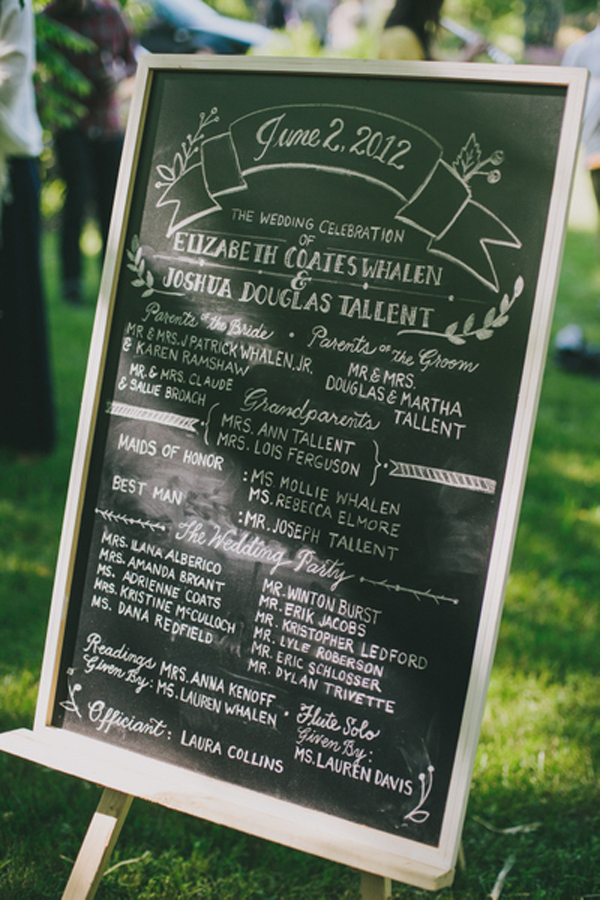 June 2, 2012
THE WEDDING CELEBRATION
OF
ELIZABETH COATES WHALEN
&
JOSHUA DOUGLAS TALLENT
Parents of the Bride
MR & MRS. J PATRICK WHALEN, JR.
& KAREN RAMSHAW
MR. & MRS. CLAUDE
& SALLIE BROACH
Parents of the Groom
MR & MRS.
DOUGLAS & MARTHA
TALLENT
Grandparents
MRS. ANN TALLENT
MRS. LOIS FERGUSON
MAIDS OF HONOR : MS. MOLLIE WHALEN
MS. REBECCA ELMORE
BEST MAN : MR. JOSEPH TALLENT
The Wedding Party
MRS. ILANA ALBERICO
MRS. AMANDA BRYANT
MS. ADRIENNE COATS
MRS. KRISTINE McCULLOCH
MS. DANA REDFIELD
MR. WINTON BURST
MR. ERIK JACOBS
MR. KRISTOPHER LEDFORD
MR. LYLE ROBERSON
MR. ERIC SCHLOSSER
MR. DYLAN TRIVETTE
Readings
Given By: MRS. ANNA KENOFF
MS. LAUREN WHALEN
Flute Solo
Given By:
MS. LAUREN DAVIS
Officiant : LAURA COLLINS